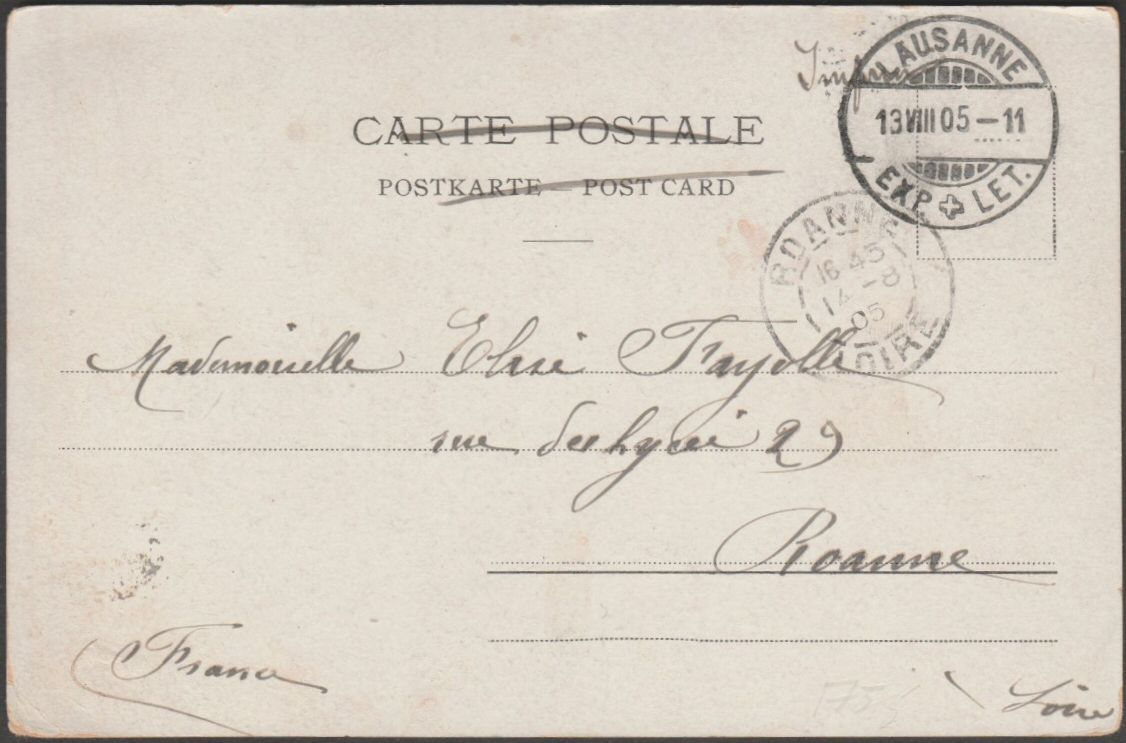 CARTE POSTALE
POSTKARTE – POST CARD
LAUSANNE
13 VIII 05 – 11
EXP. LET.
ROANNE
16 45
14 - 8
05
LOIRE
Mademoiselle Elise Fayolle
rue du lycée 29
Roanne
France
Loire